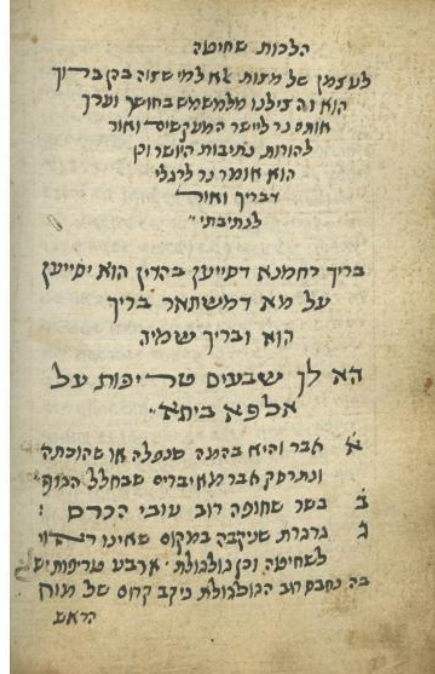 הלכות שחיטה
לעצמן של מצות לא למי שזוה בהן ברוך
הוא והצילנו מלמשמש בחושך וערך
אותם נר ליישר המעקשים ואור
להורות נתיבות היושר וכן
הוא אומר נר לרגלי
דבריך ואור
לנתיבתי
בריך רחמנא דסייען בהדין הוא יסייען
על מא דמשתאר בריך
הוא ובריך שמיה
הא לך שבעים טריפות על
אלפא ביתא
א אבר והיא בהמה שנפלה או שהוכתה
ונתרסק אבר מאיברים שבחלל הגוף
ב בשר שחופה רוב עובי הכרס :
ג גרגרת שניקבה במקום שאינו ראוי
לשחיטה וכן גולגולת ארבע טריפות יש
בה נחבס רוב הגולגולת ניקב קרום של מוח
הראש